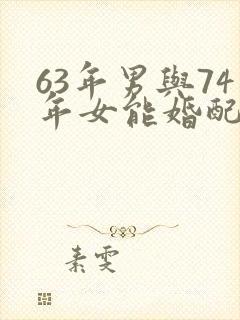 63年男與74
年女能婚配
素雯